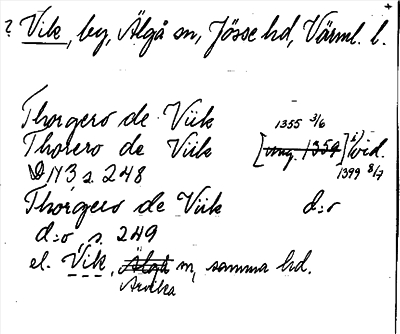 ? Vik, by, Älgå sn, Jösse hd, Värml. l.
Thorgero de Viik
1355 3/6
Thorero de Viik [ aug. 1359 ] 1) vid.
1399 8/7
N 173 s. 248
Thorgero de Viik d:o
d:o, s. 249
el. Vik, Älgå sn, samma hd.
Arvika